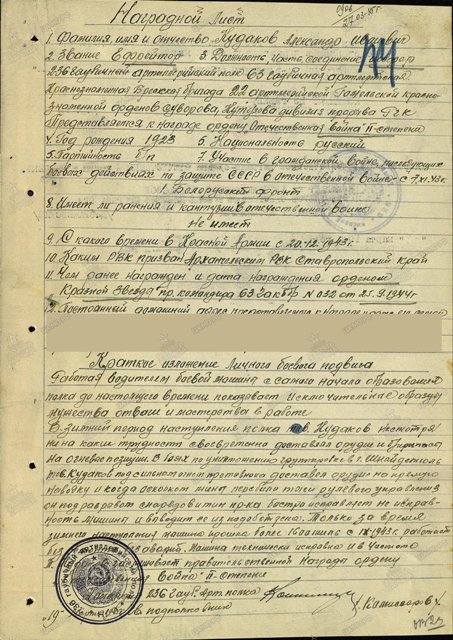 Наградной Лист
1. Фамилия, имя и отчество Кудаков Александр
2. Звание Ефрейтор 3. Должность, часть, соединение
236 гаубичный артиллерийский полк 63 гаубичная артиллерийская
Краснознаменная Бригада 22 артиллерийской Гомельской Красно-
знаменной орденов Суворова, Кутузова дивизии прорыва РГК
Представляется к награде ордену Отечественная Война II-степени
4. Год рождения 1923 5. Национальность русский
5. Партийность б/п 7. Участие в гражданской войне, последующих
боевых действиях по защите СССР в отечественной войне с 7.XI.43г.
1. Белорусский фронт
8. Имеет ли ранения и контузии в отечественной войне
Не имеет
9. С какого времени в Красной Армии с 20.12.1943г.
10. Каким РВК призван Архангельским РВК Ставропольский край
11. Чем ранее награжден и дата награждения орденом
Красной Звезда пр. командира 63 № 032 от 25.9.1944г
12. Постоянный домашний адрес
Краткое изложение Личного боевого подвига
Работая водителем боевой машины с самого начала образования
полка до настоящего времени показывает исключительные образцы
мужества отваги и мастерства в работе
В зимний период наступления полка тов. Кудаков несмотря
ни на какие трудности своевременно доставлял орудие и
на огневые позиции. В боях по уничтожению группировки в г. Шнайдемюль
тов. Кудаков под сильным противника доставил орудие на прямую
наводку и когда осколком мины перебило тяги рулевого управления
он под разрывом снарядов и мин пр-ка быстро исправляет неисправ-
ность машины и выводит ее из под обстрела. Только за время
зимнего наступления машина прошла более с 1943г. работает
без аварий. Машина технически исправна и в чистоте
правительственной Награде ордену
Война II-степени
236 Гауб. Арт. полка
подполковник